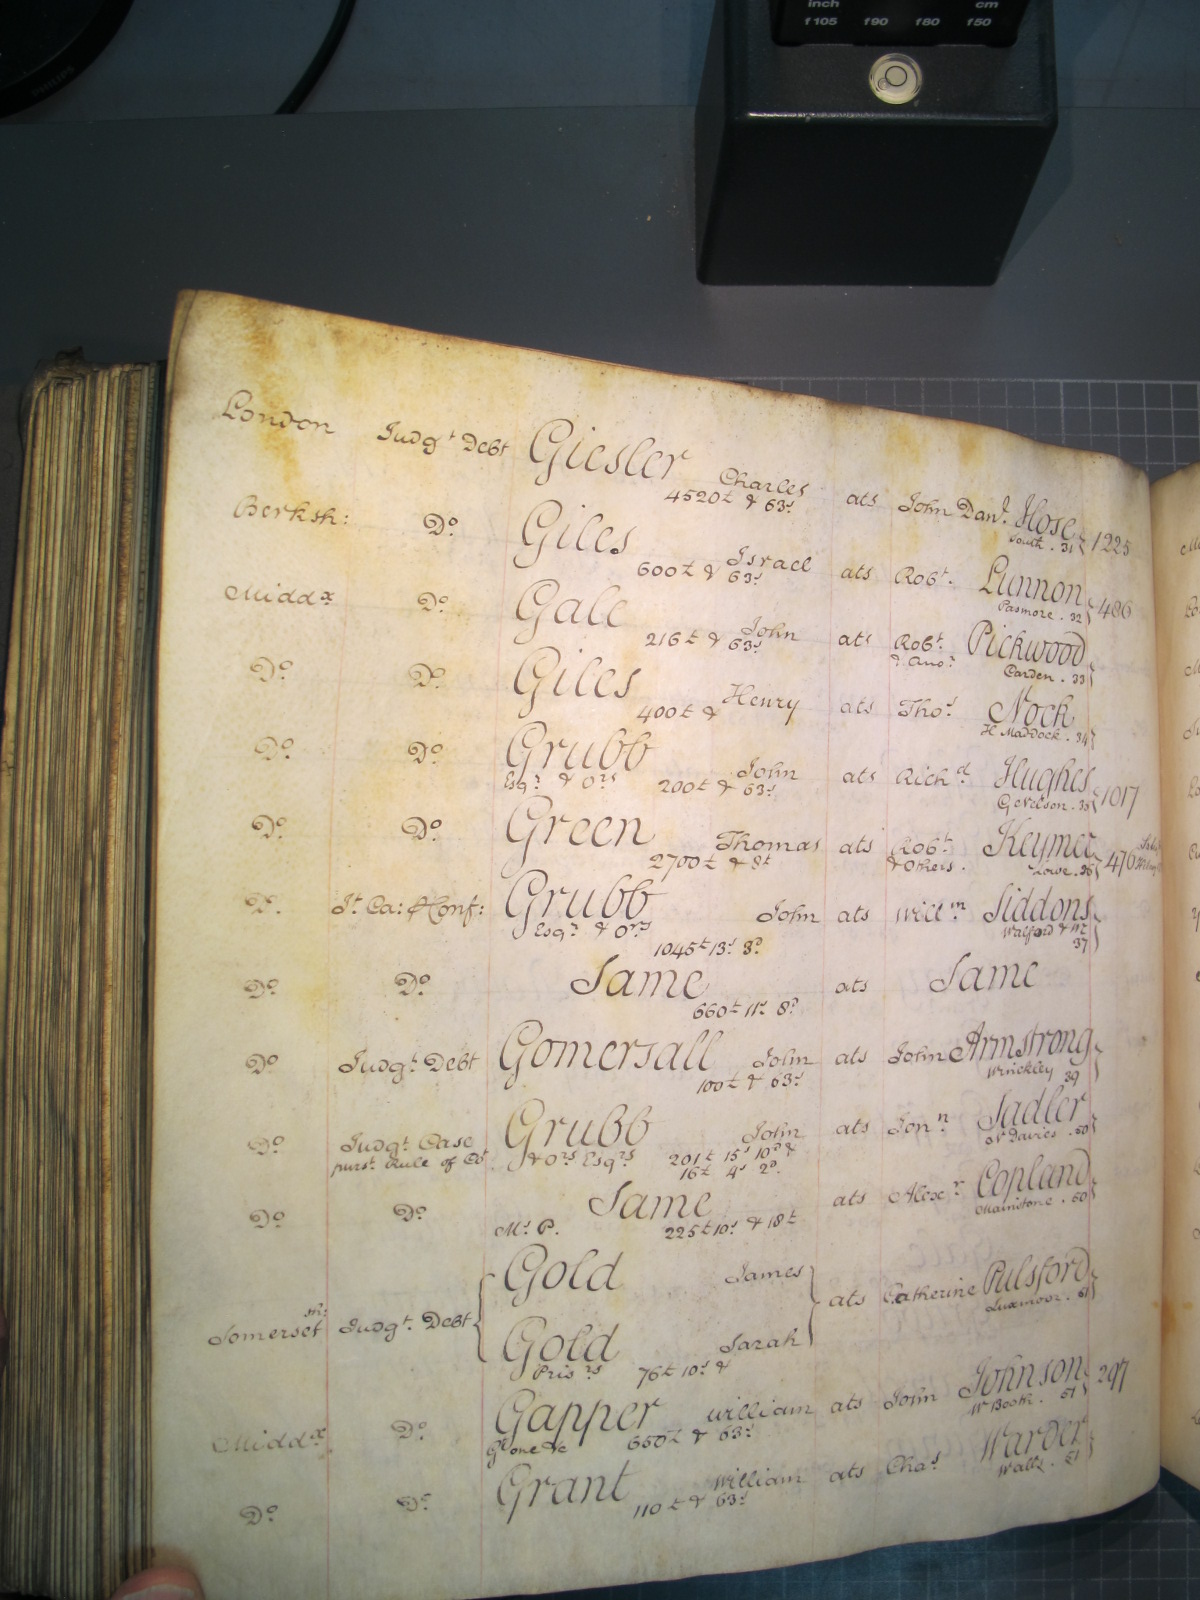 inch cm
f105 f90 f80 f50
PHILIPS
London Judgt Debt Giesler Charles ats John Danl. Hose 1225
4520£ & 63s South . 31
Berksh: Do Giles Israel ats Robt. Lunnon 406
600£ & 63s Pasmore . 32
Middx Do Gale John ats Robt. Pickwood
216£ & 63s & Anor Carden . 33
Do Do Giles Henry ats Thos Nock
400£ & H Maddock . 34
Do Do Grubb John ats Richd Hughes 1017
Esqr & Ors 200£ & 63s . 35
Do Do Green Thomas ats Robt Keymer 476
2700£ & 8£ & Others . Lowe . 36
Do Jt Ca: & Conf: Grubb John ats Willm Siddons
Esqr & Ors Walford &
1045£ 13s 8d 37
Do Do Same ats Same
660£ 11s 8d
Do Judgt Debt Gomersall John ats John Armstrong
100£ & 63s Wrickley 39
Do Judgt. Case Grubb John ats Jonn Sadler
purst. Rule of Ct & Ors Esqrs 201£ 15s 10d & Davies . 50
16£ 4s 2d
Do Do Same ats Alexr Copland
Mr P. 225£ 10s & 18£ Mainstone . 60
Gold James
Somerset sh: Judgt. Debt ats Catherine Pulsford
Luxmoor . 61
Gold Sarah
Prisrs 76£ 10s &
Middx Do Gapper William ats John Johnson 297
Gt one &c 650£ & 63s W Booth . 61
Do Do Grant William ats Chas Warder
110£ & 63s Waltr . 61